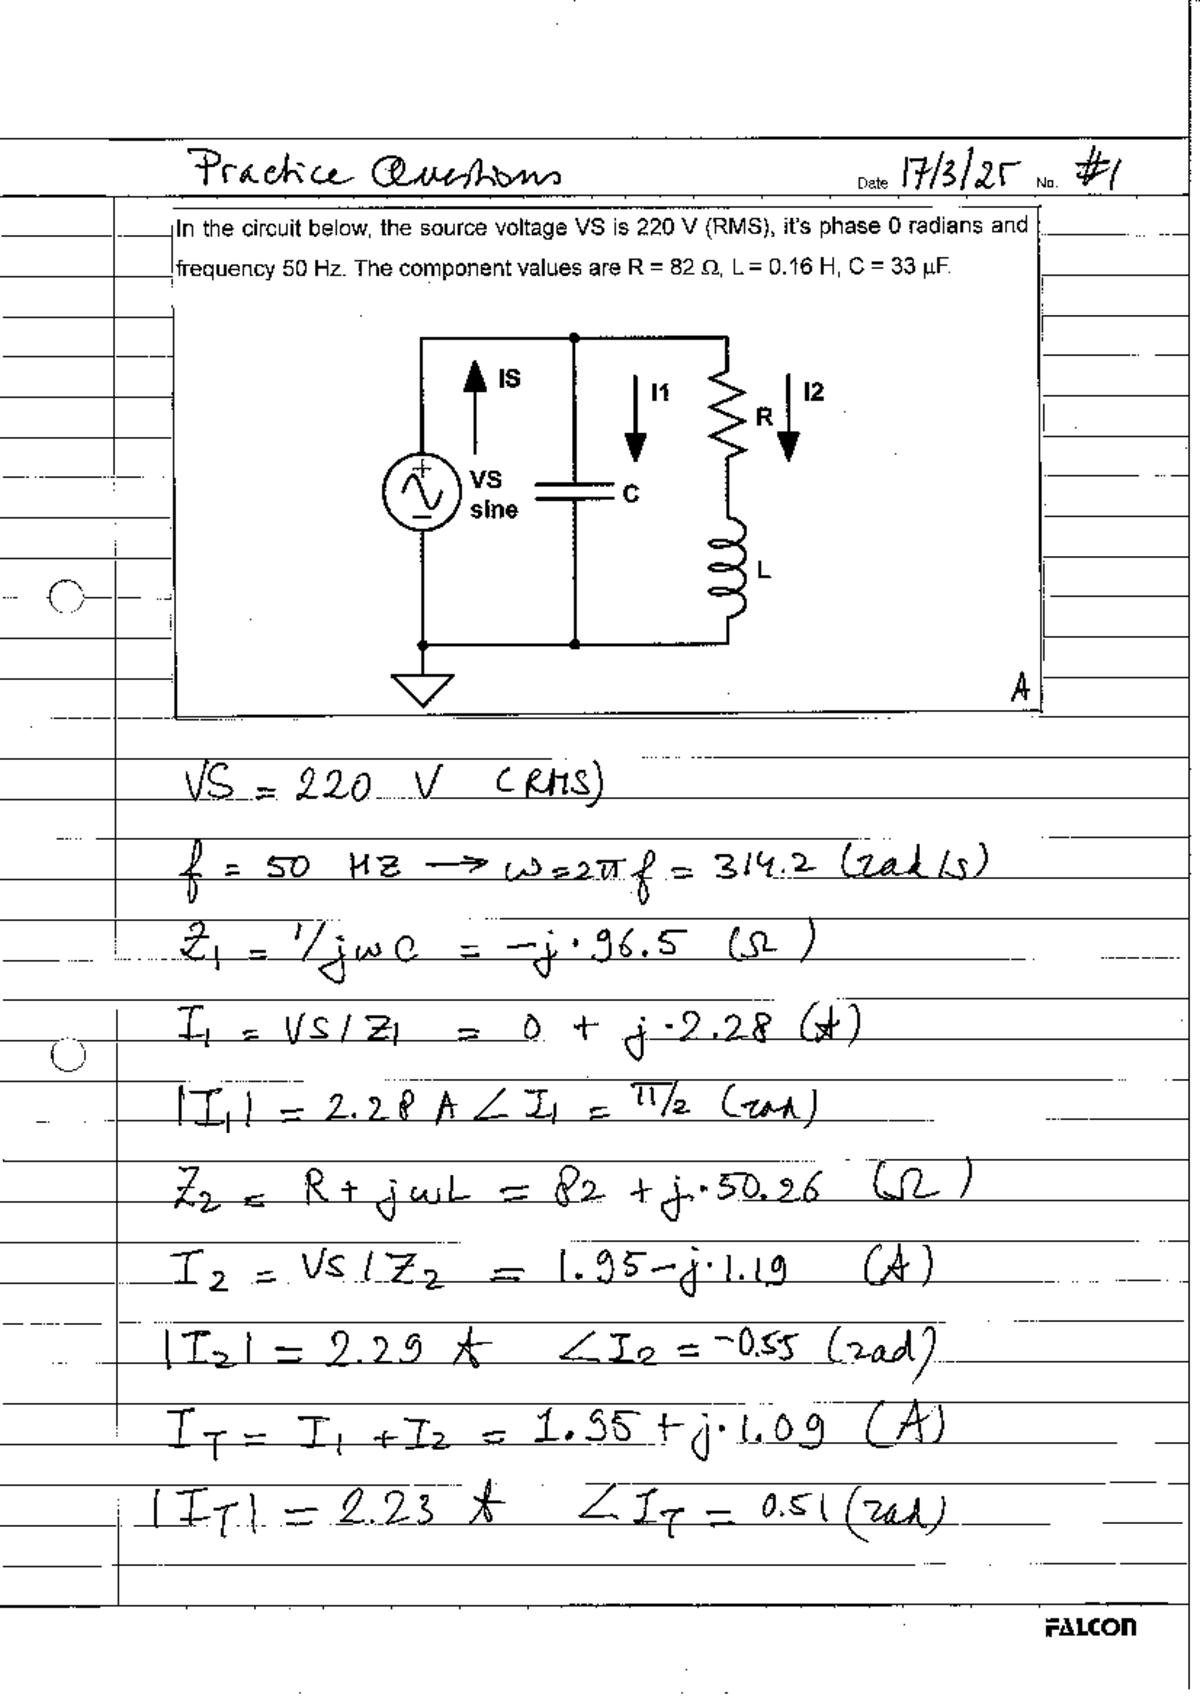 Practice Questions Date 17/3/25 No. #1
In the circuit below, the source voltage VS is 220 V (RMS), it's phase 0 radians and
frequency 50 Hz. The component values are R = 82 Ω, L = 0.16 H, C = 33 µF.
IS
I1
I2
R
+
VS
sine
−
C
L
A
VS = 220 V (RMS)
f = 50 HZ → ω=2πf = 314.2 (rad/s)
Z1 = 1/jωC = -j·96.5 (Ω)
I1 = VS/Z1 = 0 + j·2.28 (A)
|I1| = 2.28 A ∠I1 = π/2 (rad)
Z2 = R + jωL = 82 + j·50.26 (Ω)
I2 = VS/Z2 = 1.95-j·1.19 (A)
|I2| = 2.29 A ∠I2 = -0.55 (rad)
IT = I1 + I2 = 1.95 + j·1.09 (A)
|IT| = 2.23 A ∠IT = 0.51 (rad)
FALCON